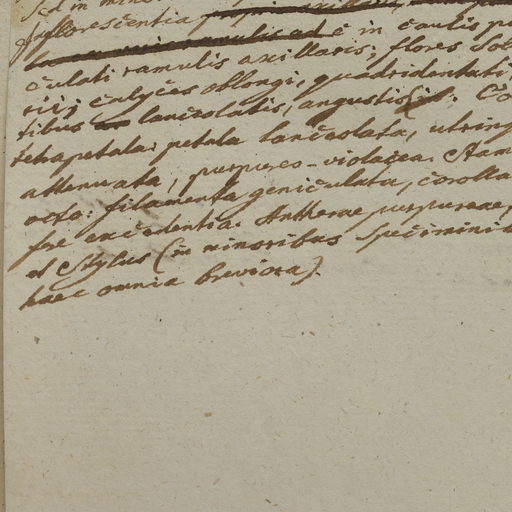 Sed in minor
Inflorescentia
è in caulis
culati ramulis axillaris; flores Sol
rii; calyces oblongi, quadridentati,
tibus lanceolatis, angustis. Co
tetrapetala: petala lanceolata, utrinq
attenuata, purpureo-violacea. Stam
octo: filamenta geniculata, corolla
fre excedentia. Antherae purpureae,
et Stylus (in minoribus Speciminib
haec omnia breviora).